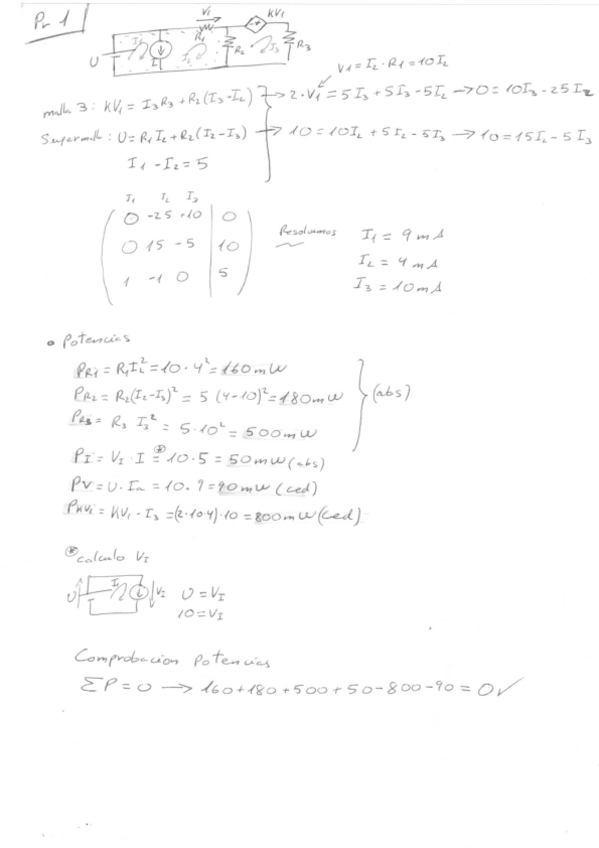 Pr 1
Vi
KV1
U
I1
I
I2
R1
R2
I3
R3
V1 = I2 · R1 = 10 I2
malla 3: KV1 = I3 R3 + R2 (I3 - I2) → 2 · V1 = 5 I3 + 5 I3 - 5 I2 → 0 = 10 I3 - 25 I2
Supermalla: U = R1 I2 + R2 (I2 - I3) → 10 = 10 I2 + 5 I2 - 5 I3 → 10 = 15 I2 - 5 I3
I1 - I2 = 5
I1 I2 I3
0 -25 +10 | 0
0 15 -5 | 10
1 -1 0 | 5
Resolvemos
I1 = 9 mA
I2 = 4 mA
I3 = 10 mA
• Potencias
PR1 = R1 I2² = 10 · 4² = 160 mW
PR2 = R2 (I2 - I3)² = 5 (4 - 10)² = 180 mW
PR3 = R3 I3² = 5 · 10² = 500 mW
(abs)
PI = VI · I =* 10 · 5 = 50 mW (abs)
PV = U · Ia = 10 · 9 = 90 mW (ced)
PKVi = KV1 · I3 = (2 · 10 · 4) · 10 = 800 mW (ced)
* calculo VI
U
I1
VI
U = VI
10 = VI
Comprobacion Potencias
ΣP = 0 → 160 + 180 + 500 + 50 - 800 - 90 = 0 ✓